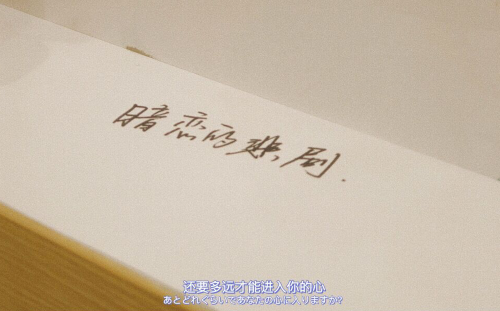 暗恋的悲剧.
还要多远才能进入你的心
あとどれぐらいであなたの心に入りますか?